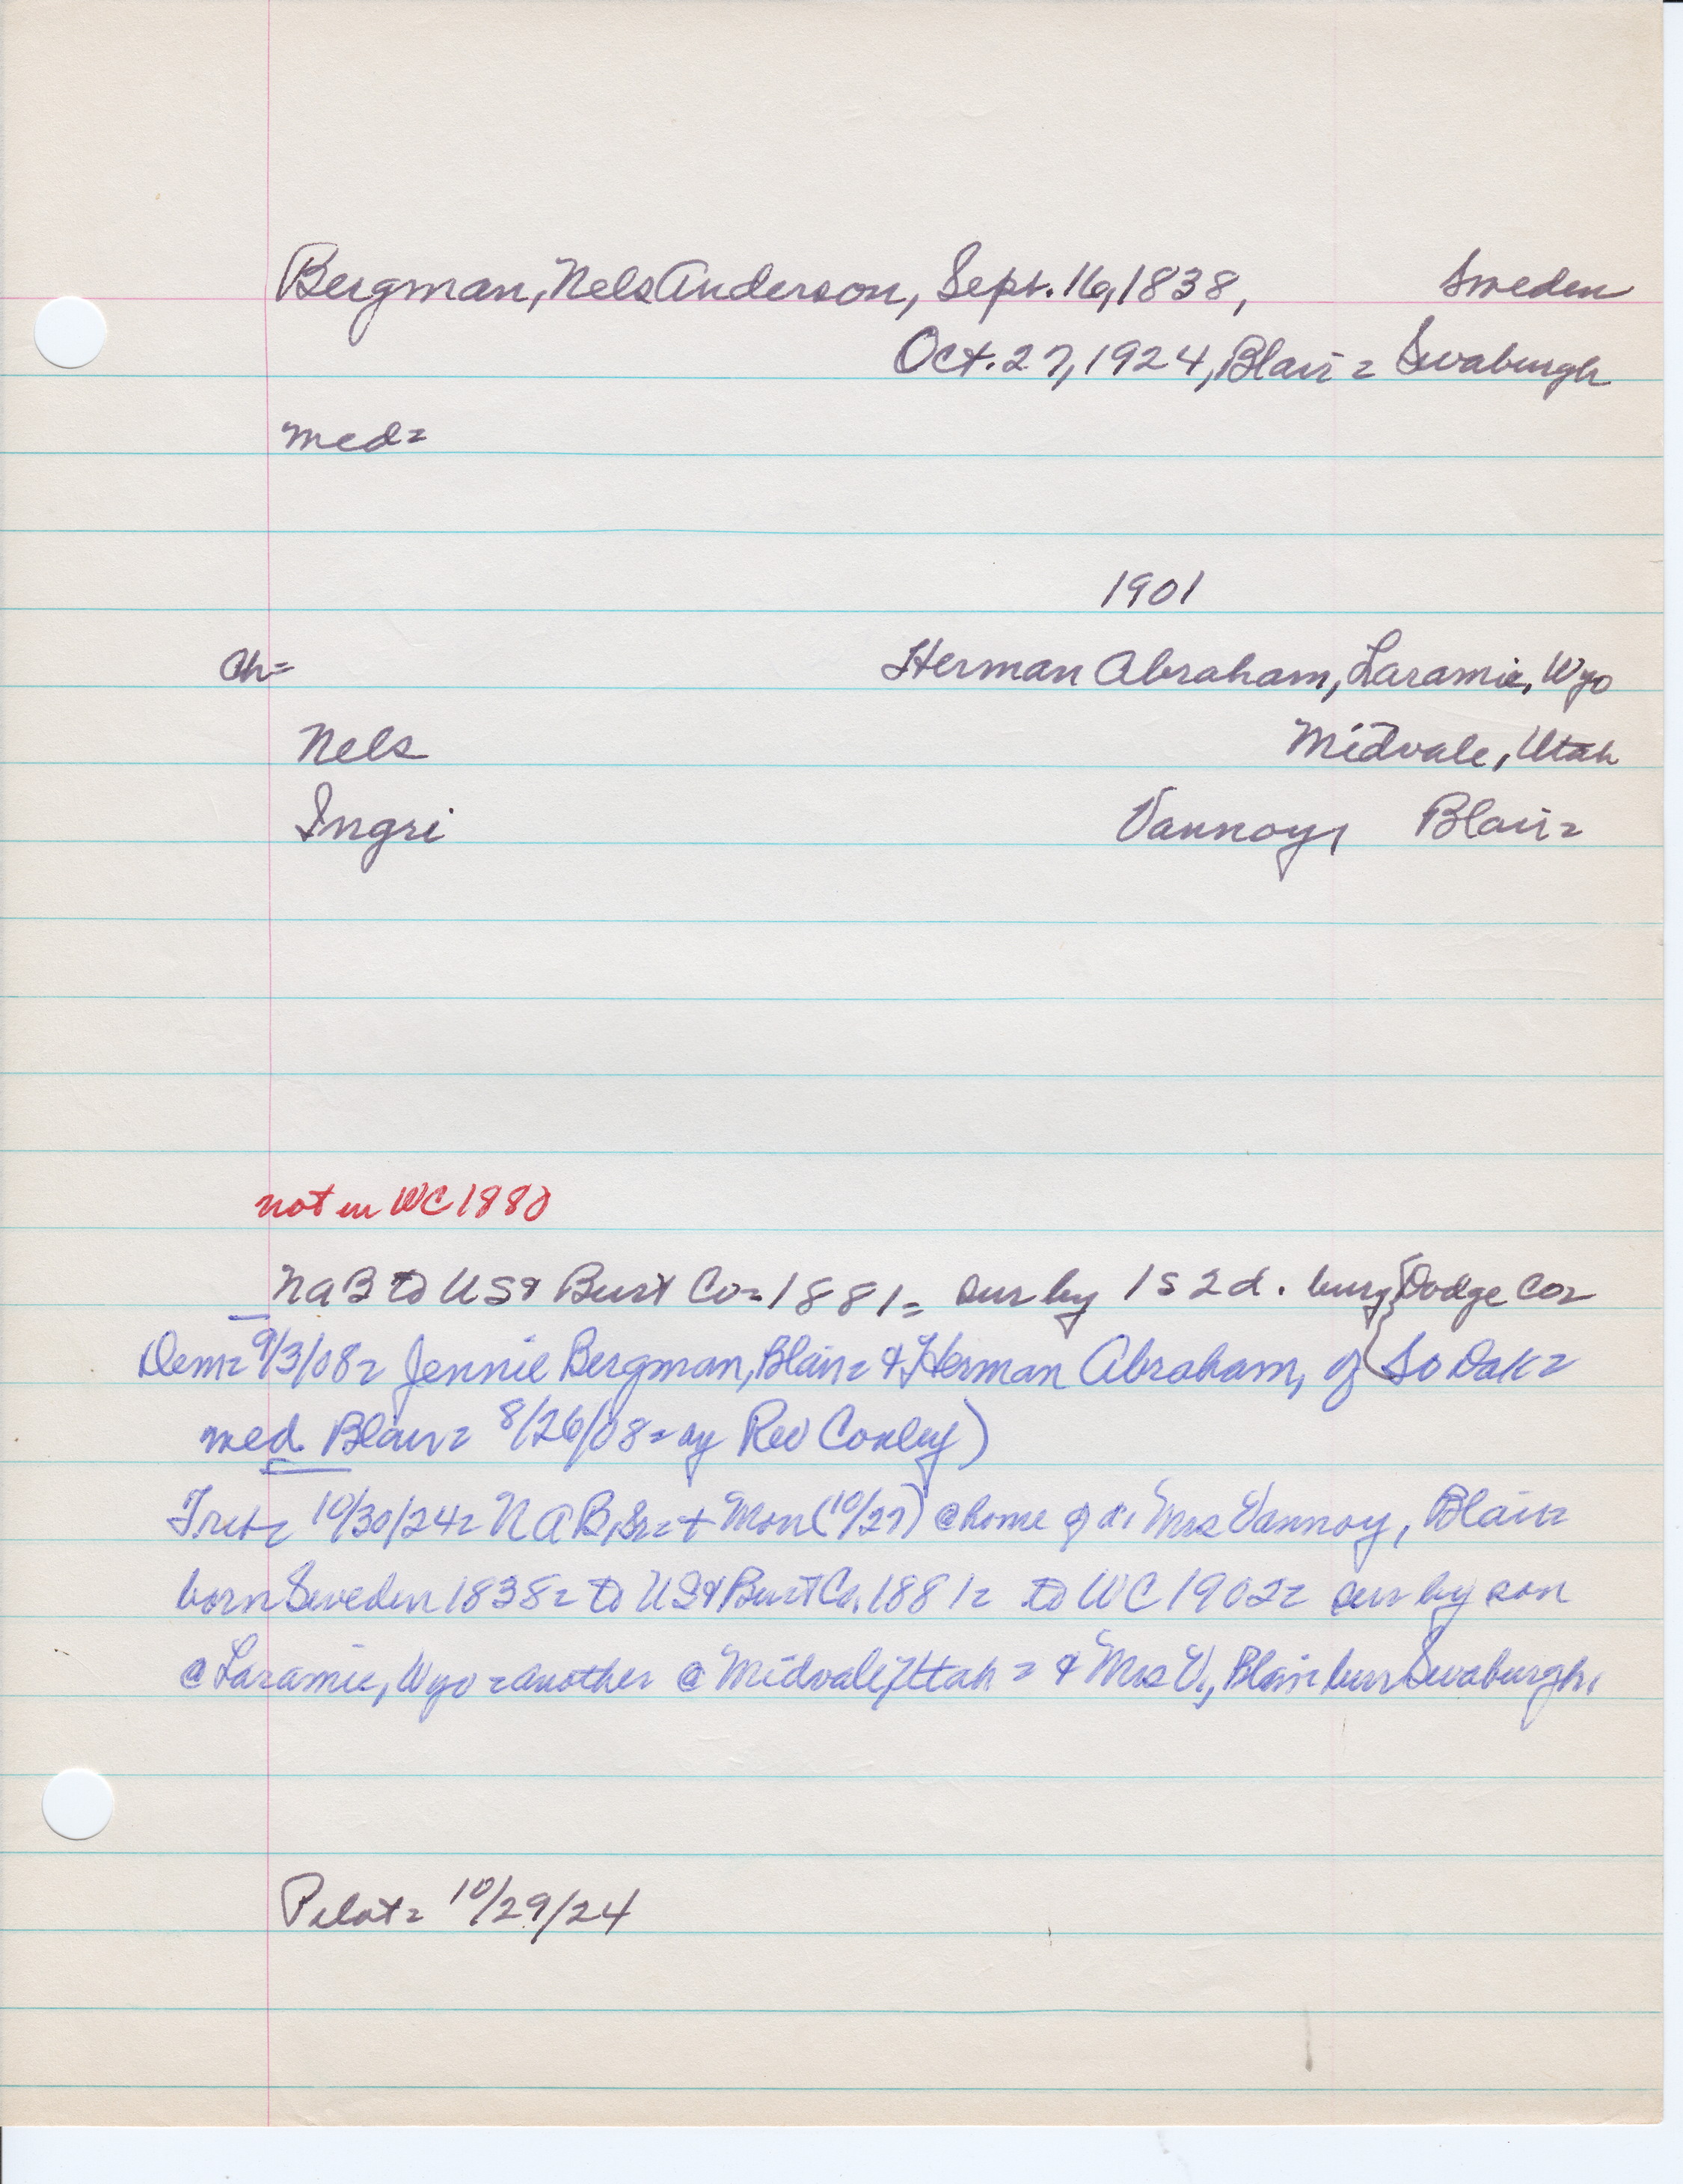 Bergman, Nels Anderson, Sept. 16, 1838, Sweden
Oct. 27, 1924, Blair = Swaburgh
med=
1901
Ch= Herman Abraham, Laramie, Wyo
Nels Midvale, Utah
Ingri Vannoy, Blair=
not in WC 1880
NAB to US & Burt Co = 1881 = sur by 1s 2d. bury Dodge Co=
Dem= 9/3/08= Jennie Bergman, Blair= & Herman Abraham, of So Dak=
med. Blair= 8/26/08= by Rev Conley)
Trib= 10/30/24= N A B, Sr.= + Mon (10/27) @ home of d. Mrs Vannoy, Blair=
born Sweden 1838= to US & Burt Co. 1881= to WC 1902= sur by son
@ Laramie, Wyo = another @ Midvale, Utah = & Mrs V., Blair bur Swaburgh.
Pilot= 10/29/24